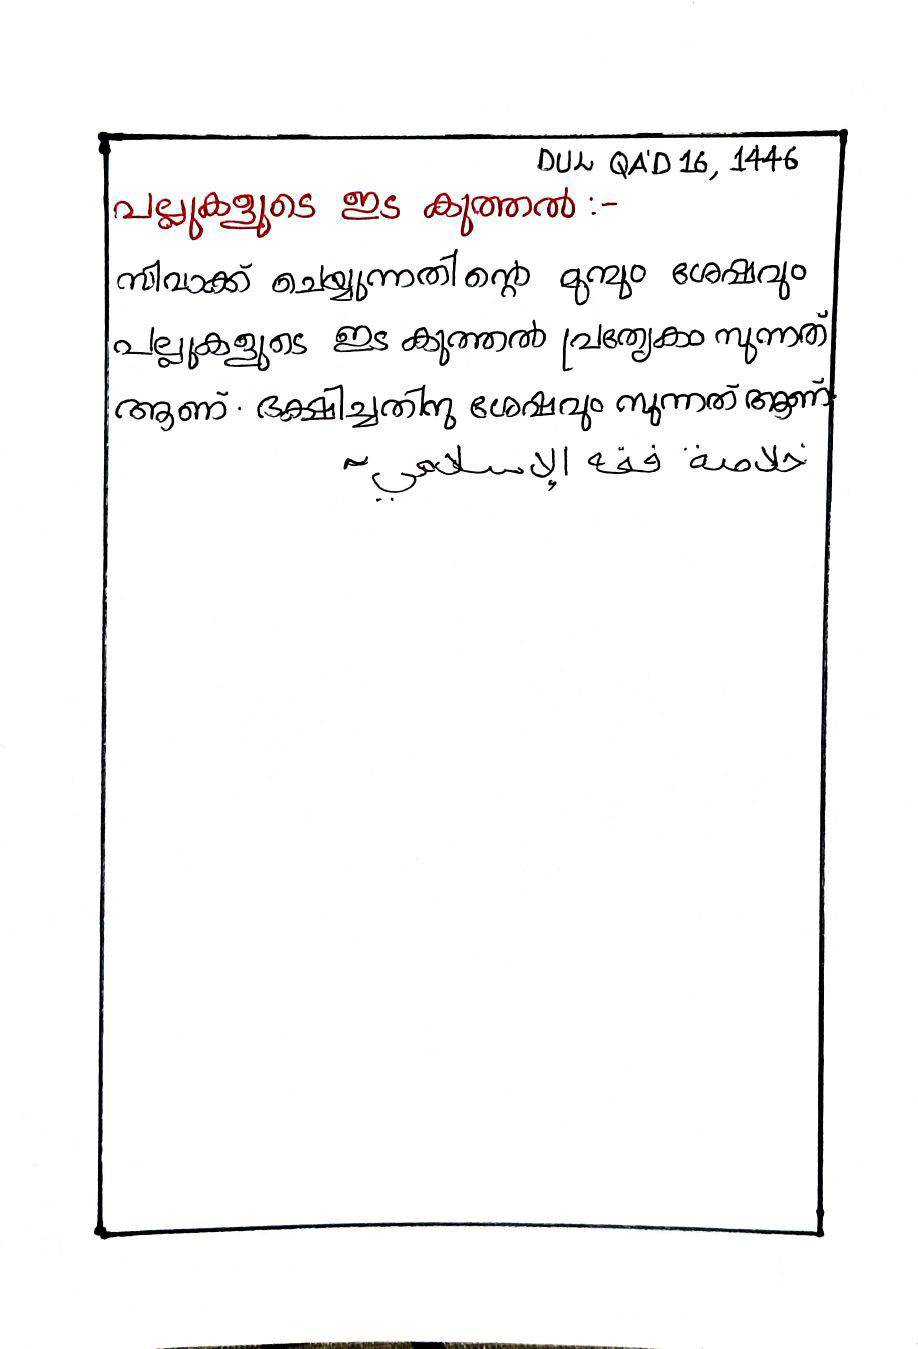 DUL QA'D 16, 1446
പല്ലുകളുടെ ഇട കുത്തൽ :-
സിവാക്ക് ചെയ്യുന്നതിന്റെ മുമ്പും ശേഷവും
പല്ലുകളുടെ ഇട കുത്തൽ പ്രത്യേകം സുന്നത്
ആണ്. ഭക്ഷിച്ചതിനു ശേഷവും സുന്നത് ആണ്
خلاصة فقه الإسلامي ~